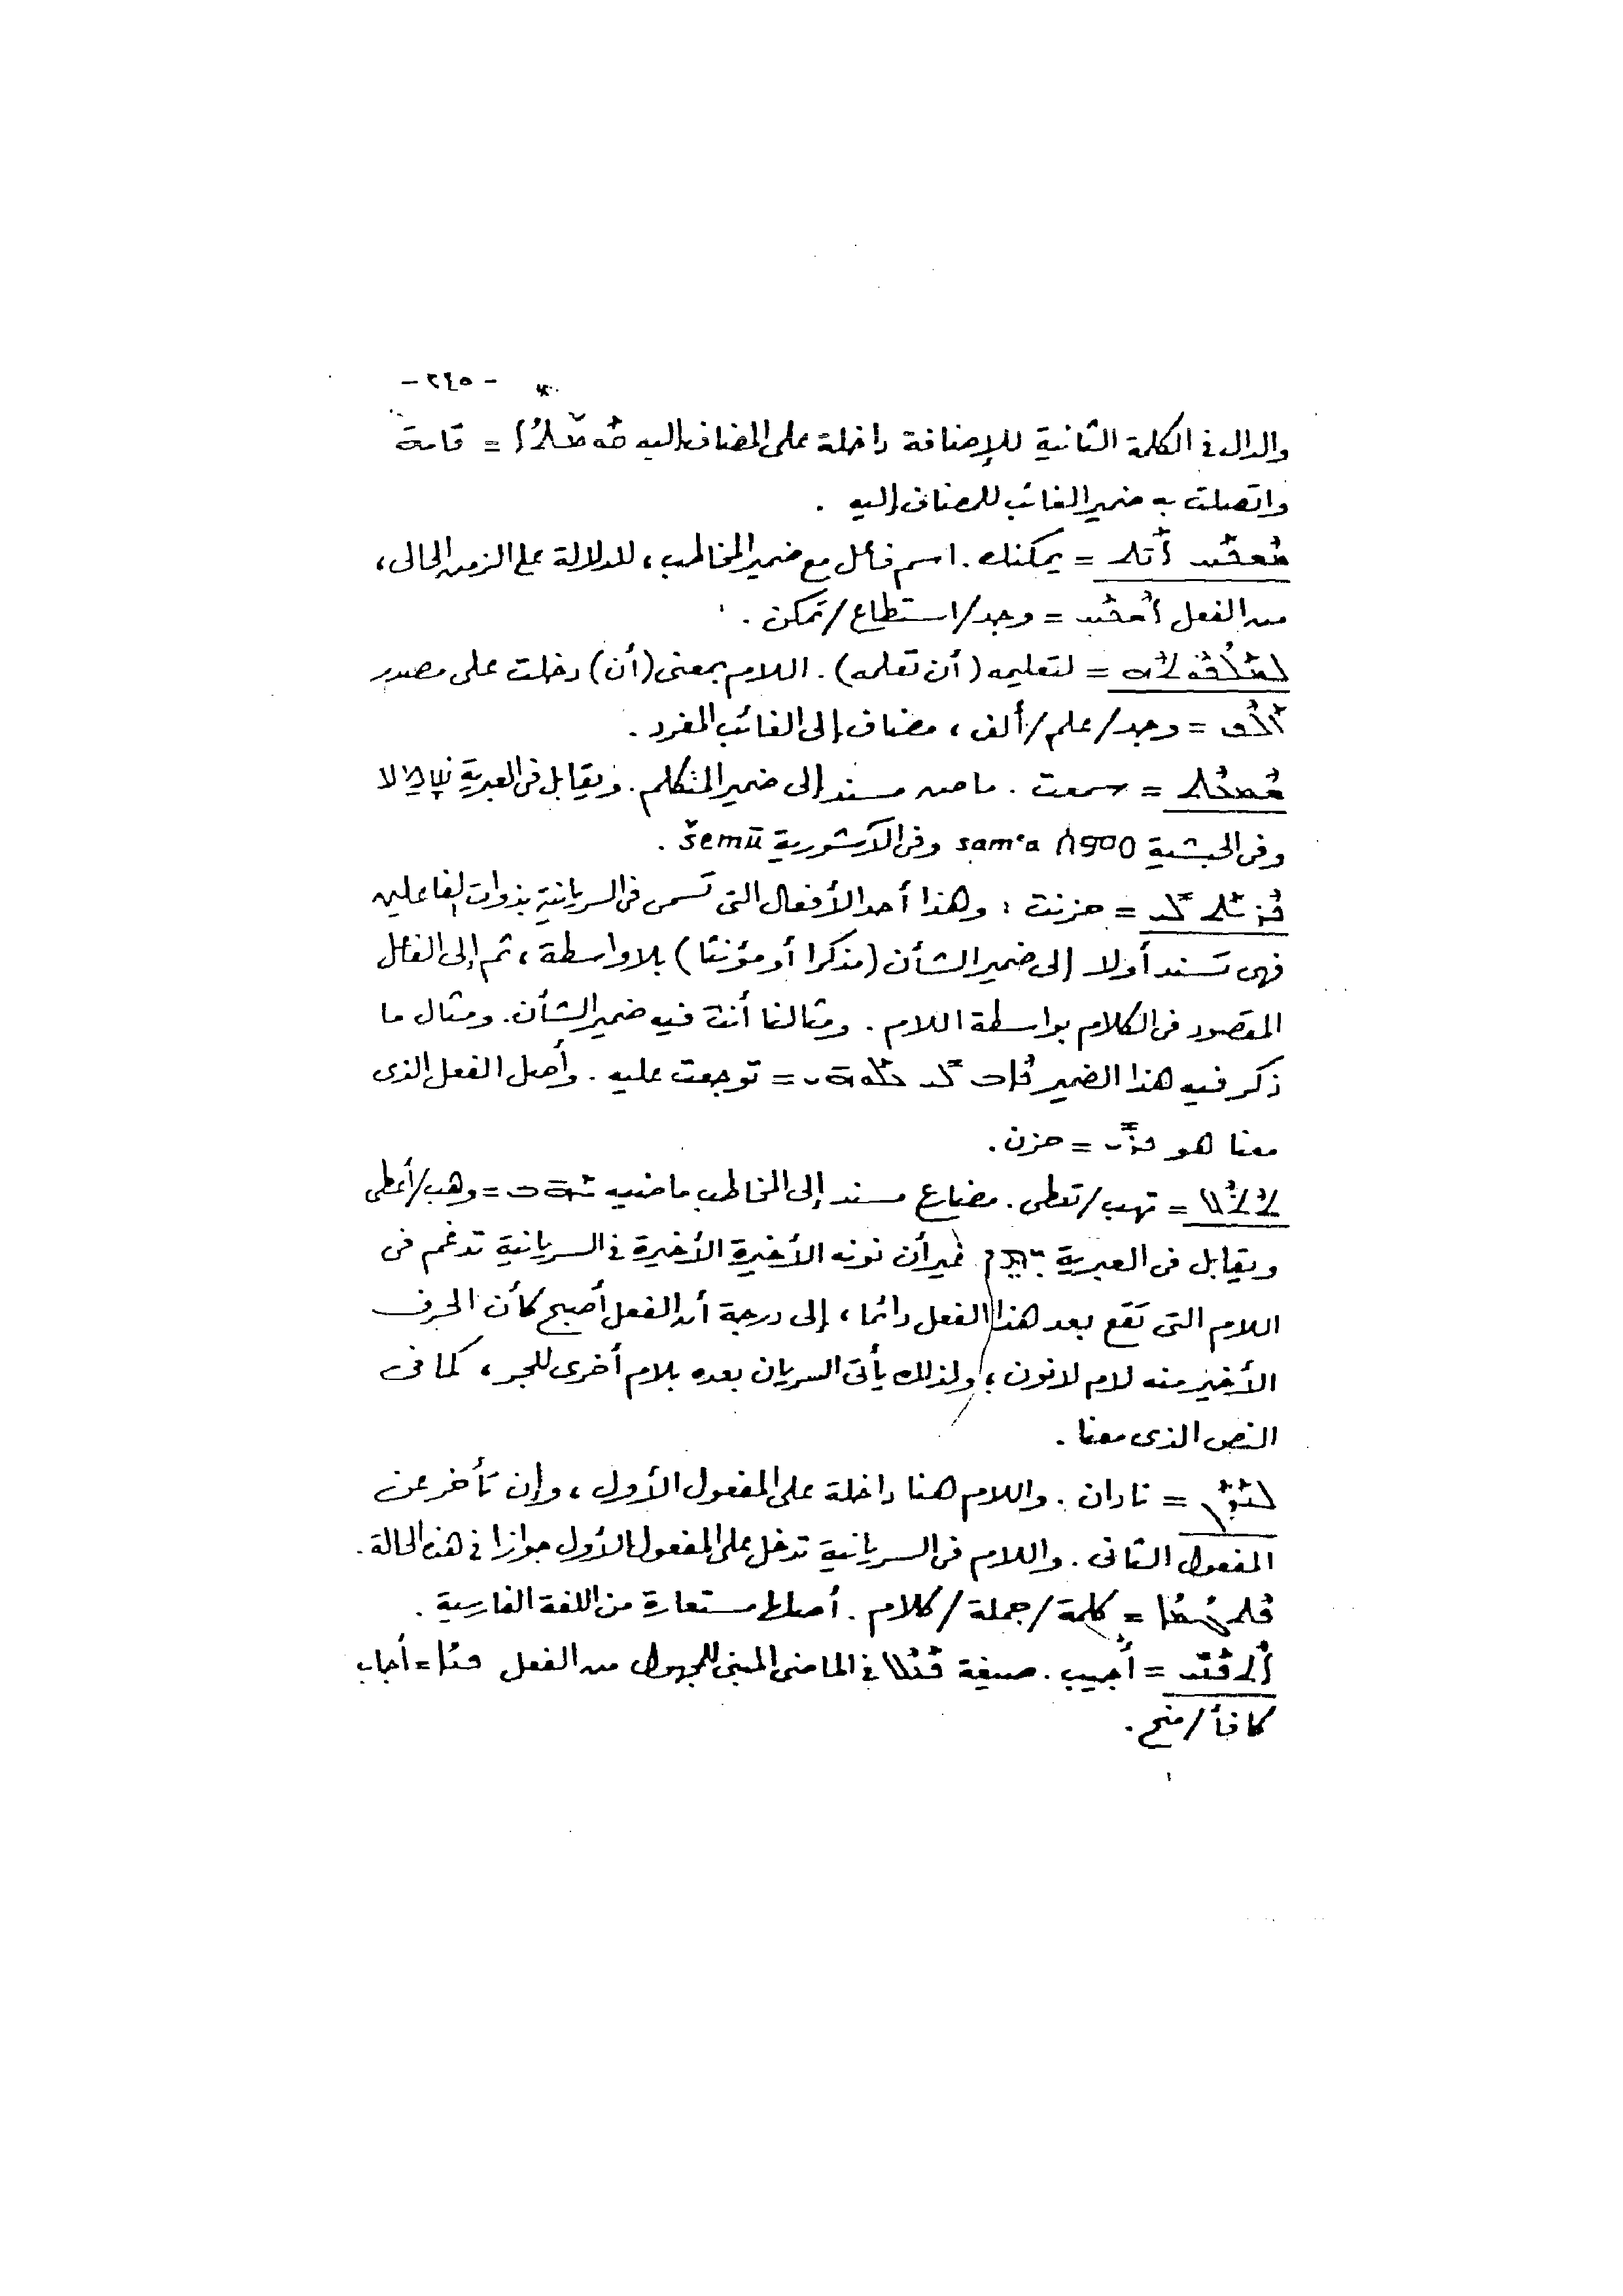 - ٢٤٥ -
والدال فى الكلمة الثانية للإضافة داخلة على المضاف إليه ܩܘܡܬܐ = قامة
واتصلت به ضمير الغائب للمضاف إليه .
ܡܫܟܚ ܐܢܬ = يمكنك . اسم فاعل مع ضمير المخاطب ، للدلالة على الزمن الحالى ،
من الفعل ܐܫܟܚ = وجد/استطاع/تمكن .
= لتعليمه (أن تعلمه) . اللام بمعنى (أن) دخلت على مصدر
ܐܠܦ = وجد/علم/ألف ، مضاف إلى الغائب المفرد .
ܫܡܥܬ = سمعت . ماض مسند إلى ضمير المتكلم . ويقابل فى العبرية שמע
وفى الحبشية ሰምዐ sam‘a وفى الآشورية šemū .
ܟܪܝܬ ܠܝ = حزنت : وهذا أحد الأفعال التى تسمى فى السريانية بذوات الفاعلين
فهى تسند أولا إلى ضمير الشأن (مذكرا أو مؤنثا) بلا واسطة ، ثم إلى الفاعل
المقصود فى الكلام بواسطة اللام . ومثالنا أنت فيه ضمير الشأن . ومثال ما
ذكر فيه هذا الضمير ܟܐܒ ܠܝ ܥܠܘܗܝ = توجعت عليه . وأصل الفعل الذى
معنا هو ܟܪܝ = حزن .
ܬܬܠ = تهب/تعطى . مضارع مسند إلى المخاطب ماضيه ܝܗܒ = وهب/أعطى
ويقابل فى العبرية غير أن نونه الأخيرة الأخيرة فى السريانية تدغم فى
اللام التى تقع بعد هذا الفعل دائما ، إلى درجة أن الفعل أصبح كأن الحرف
الأخير منه لام لانون ؛ ولذلك يأتى السريان بعده بلام أخرى للجر ، كما فى
النص الذى معنا .
ܠܢܕܢ = نادان . واللام هنا داخلة على المفعول الأول ، وإن تأخر عن
المفعول الثانى . واللام فى السريانية تدخل على المفعول الأول جوازا فى هذه الحالة .
ܦܬܓܡܐ = كلمة/جملة/كلام . أصلها مستعارة من اللغة الفارسية .
ܐܬܦܢܝ = أُجيب . صيغة فى الماضى المبنى للمجهول من الفعل ܦܢܐ = أجاب
كافأ/منح .